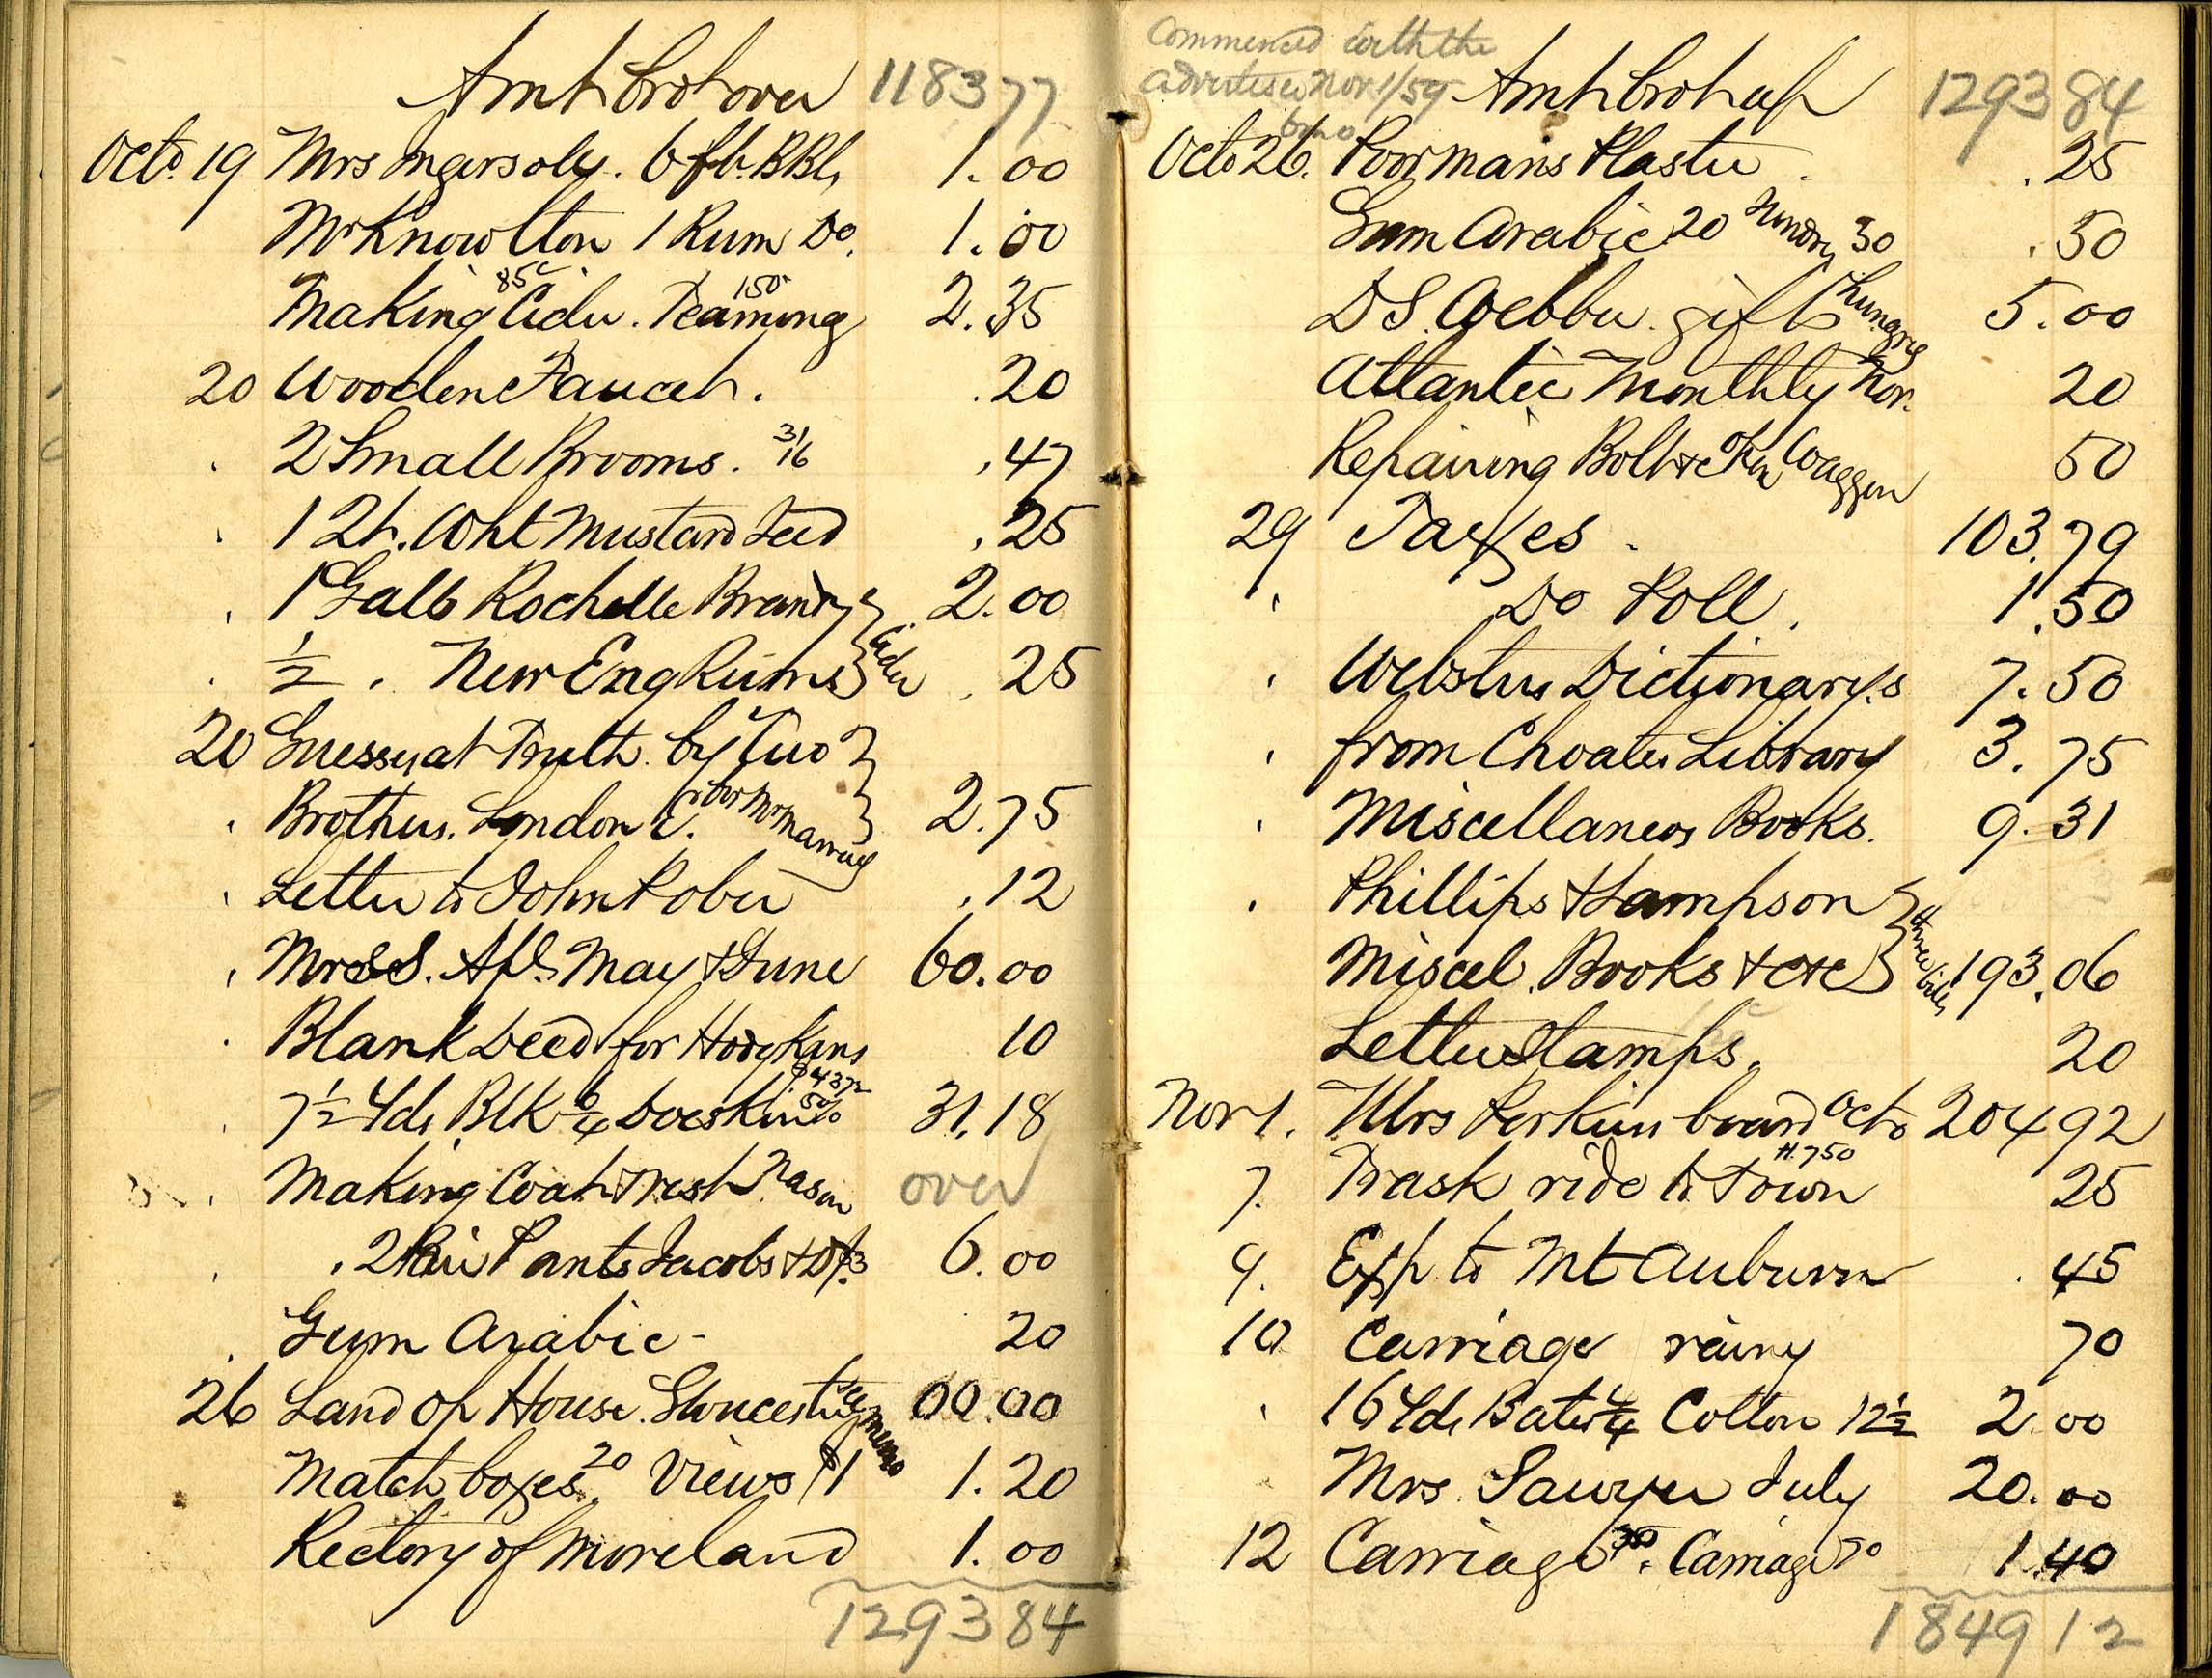 Amt brot over 1183 77
Octo. 19 Mrs Ingersoly. 6 fl. BBls 1.00
Mr Knowlton 1 Rum Do. 1.00
Making 85c Cider. Teaming 150 2.35
20 Wooden Faucet. .20
2 Small Brooms. 31/16 .47
1 lb. Wht Mustard Seed .25
1 Gall Rochelle Brandy 2.00
1/2 . New Eng Rum Cider .25
20 Guesses at Truth. by Two
Brothers. London C. for Mr Murray 2.75
Letter to John Rober .12
Mrs S. Apl. May & June 60.00
Blank Deed for Hodgkins 10
7 1/2 Yds Blk 6/4 Doeskin 31.18
Making Coat & Vest Nason over
. 2 Pair Pants Jacobs & D $3 6.00
Gum Arabic - 20
26 Land of House. Gloucester see memo 00.00
Match boxes 20. Views $1 1.20
Rectory of Moreland 1.00
1293 84
Commenced with the
advertiser Nov 1/59
6 mo
Amt brot up 1293 84
Octo 26. Poormans Plaster .25
Gum Arabic 20 Sundry 30 .50
D S. Webber. gift Hungry 5.00
Atlantic Monthly Nov. 20
Repairing Bolt &c For Waggon 50
29 Taxes. 103.79
Do Poll. 1.50
Websters Dictionarys 7.50
from Choates Library 3.75
Miscellaneos Books. 9.31
Phillips & Sampson
Miscel. Books & etc three bills 193.06
Letter Stamps. 20
Nov 1. Mrs Perkins board Octo 204 92
7. Trask ride to Town 25
9. Exp to Mt Auburn .45
10 Carriage rainy 70
16 Yds Bates 4/4 Cotton 12 1/2 2.00
Mrs Sawyer July 20.00
12 Carriage. Carriage 70 1.40
1849 12